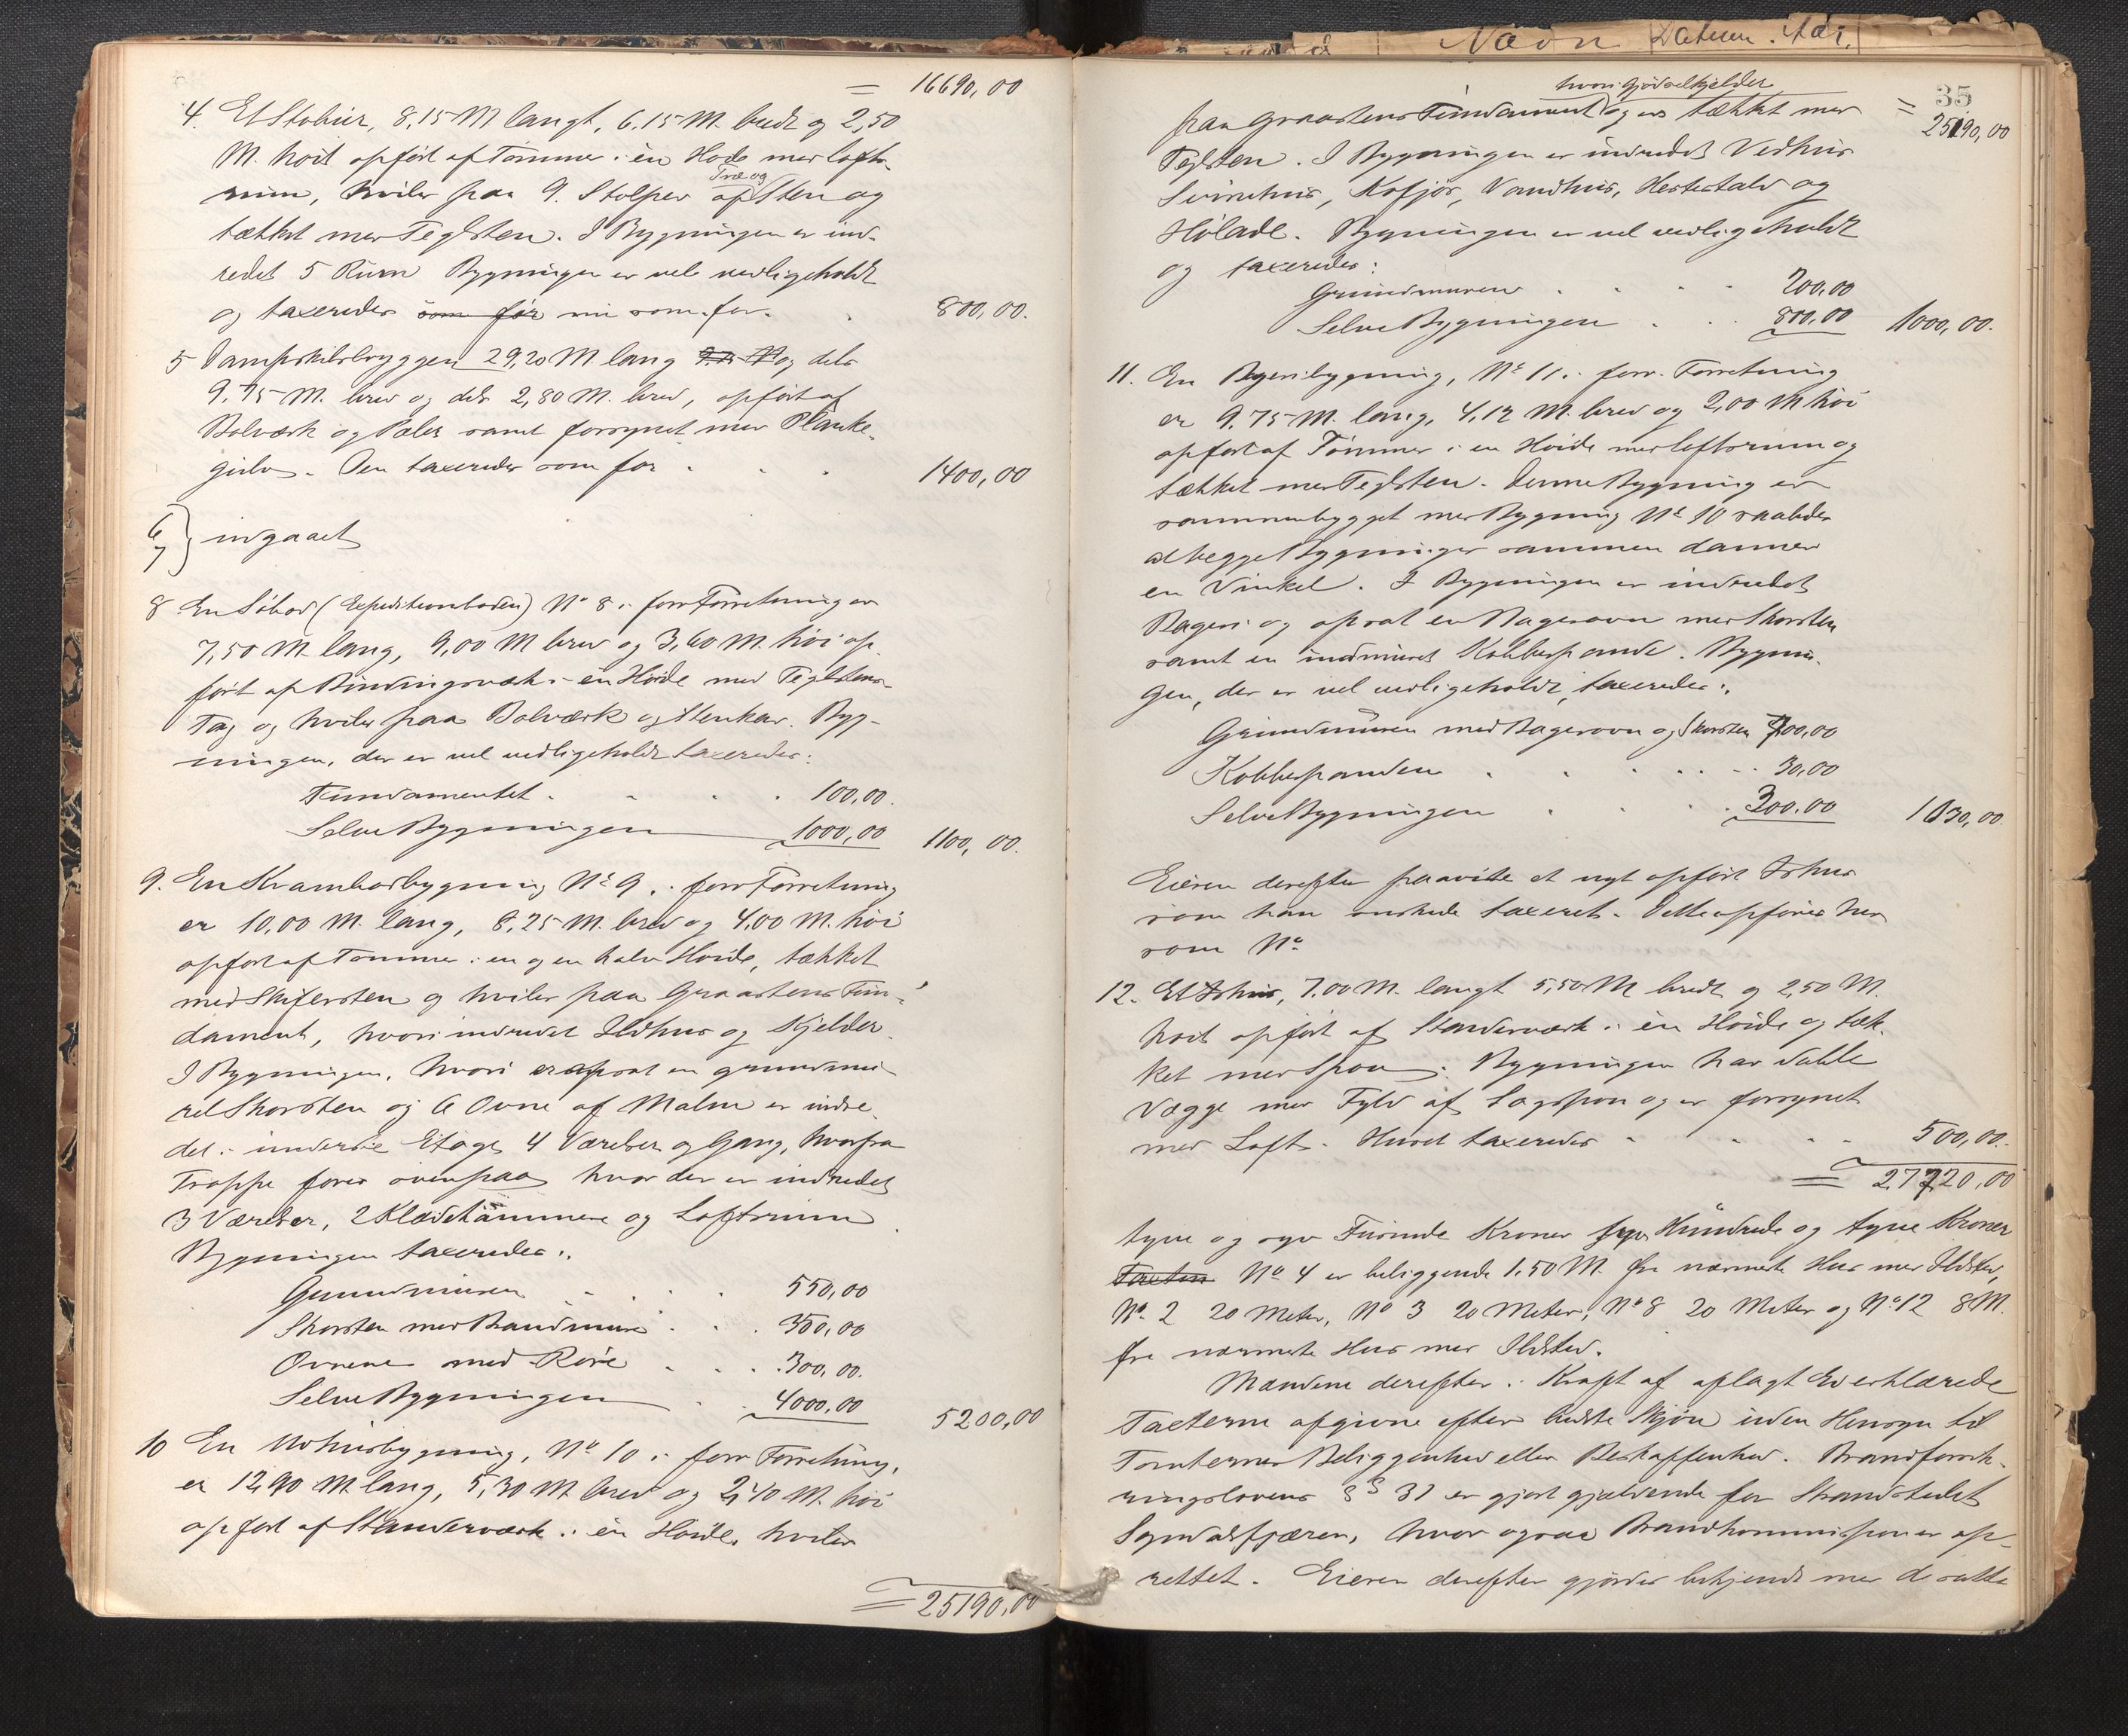 = 16690,00
4. Et Stabur, 8,15 M langt, 6,15 M. bredt og 2,50
M. höit opfört af Tömmer i én Höide med lofts-
rum, hviler paa 9. Stolper af Træ og Sten og
tækket med Teglsten. I Bygningen er ind-
redet 5 Rum Bygningen er vel vedligeholdt
og taxeredes som för nu som för. 800,00.
5 Dampskibsbryggen 29,20 M lang og dels
9,75 M. bred og dels 2,80 M. bred, opfört af
Bolværk og Pæler samt forsynet med Planke-
gulv. Den taxeredes som för 1400,00
6 7 } indgaaet
8 En Söbod (Expeditionsboden) No 8 i forr Forretning er
7,50 M. lang, 9,00 M bred og 3,60 M. höi op-
fört af Bindingsværk i én Höide med Teglstens-
Tag og hviler paa Bolværk og Stenkar. Byg-
ningen, der er vel vedligeholdt taxeredes:
Fundamentet 100,00.
Selve Bygningen 1000,00 1100,00.
9. En Krambodbygning No 9. i forr Forretning
er 10,00 M. lang, 8,25 M. bred og 4,00 M. höi
opfört af Tömmer i en og en halv Höide, tækket
med Skifersten og hviler paa Graastens Fun-
dament, hvori indredet Ildhus og Kjelder.
I Bygningen, hvori er opsat en grundmu-
ret Skorsten og 6 Ovne af Malm er indre-
det i underste Etage 4 Værelser og Gang, hvorfra
Trappe förer ovenpaa hvor der er indredet
3 Værelser, 2 Klædekammere og Loftsrum
Bygningen taxeredes:
Grundmuren 550,00
Skorsten med Brandmure 350,00
Ovnene med Röre 300,00.
Selve Bygningen 4000,00 5200,00
10 En Udhusbygning, No 10 i forr Forretning,
er 12,90 M. lang, 5,30 M. bred og 2,40 M. höi
opfört af Stænderværk i én Höide, hviler
= 25190,00
Navn Datum. Aar.
35
= 25190,00
hvori Gjödselkjelder
paa Graastens Fundament og er tækket med
Teglsten. I Bygningen er indredet Vedhus
Svinehus, Kofjös, Vandhus, Hestestald og
Hölade. Bygningen er vel vedligeholdt
og taxeredes:
Grundmuren 200,00
Selve Bygningen 800,00 1000,00.
11. En Bageribygning, No 11 i forr. Forretning
er 9,75 M. lang, 4,12 M. bred og 2,00 M höi
opfört af Tömmer i en Höide med loftsrum og
tækket med Teglsten. Denne Bygning er
sammenbygget med Bygning No 10 saaledes
at begge Bygninger sammen danner
en Vinkel. I Bygningen er indredet
Bageri og opsat en Bagerovn med Skorsten
samt en indmuret Kobberpande. Bygnin-
gen, der er vel vedligeholdt, taxeredes:
Grundmuren med Bagerovn og Skorsten 700,00
Kobberpanden 30,00
Selve Bygningen 300,00 1030,00.
Eieren derefter paaviste et nyt opfört Ishus
som han önskede taxeret. Dette opföres her
som No
12. Et Ishus, 7,00 M. langt 5,50 M bredt og 2,50 M.
höit opfört af Stænderværk i én Höide og tæk-
ket med Spon. Bygningen har dobble
Vægge med Fyld af Sagspon og er forsynet
med Loft. Huset taxeredes 500,00.
= 27720,00
tyve og syv Tusinde Kroner syv Hundrede og tyve Kroner
No 4 er beliggende 1,50 M. fra nærmeste Hus med Ildsted,
No 2 20 Meter, No 3 20 Meter, No 8 20 Meter og No 12 8 M.
fra nærmeste Hus med Ildsted.
Mændene derefter i Kraft af aflagt Ed erklærede
Taxterne afgivne efter bedste Skjön uden Hensyn til
Tomternes Beliggenhed eller Beskaffenhed. Brandforsik-
ringslovens § 31 er gjort gjældende for Strandstedet
Sogndalsfjæren, hvor ogsaa Brandkommission er op-
rettet. Eieren derefter gjordes bekjendt med de satte